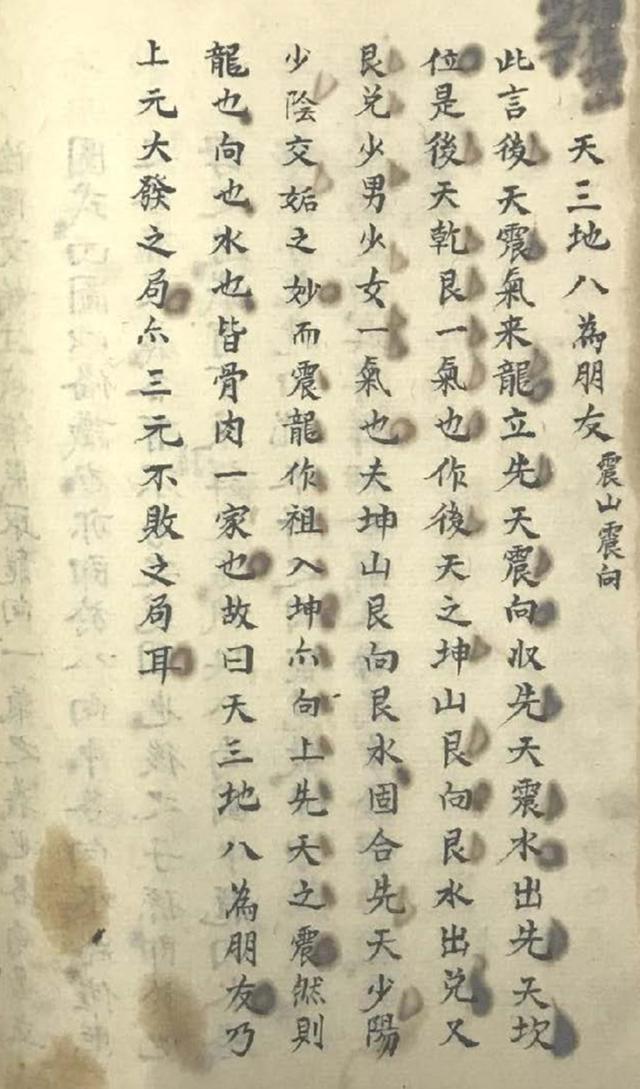 天三地八為朋友震山震向
此言後天震氣来龍立先天震向收先天震水出先天坎
位是後天乾艮一氣也作後天之坤山艮向艮水出兑又
艮兑少男少女一氣也夫坤山艮向艮水固合先天少陽
少陰交姤之妙而震龍作祖入坤尒向上先天之震然則
龍也向也水也皆骨肉一家也故曰天三地八為朋友乃
上元大發之局尒三元不敗之局耳